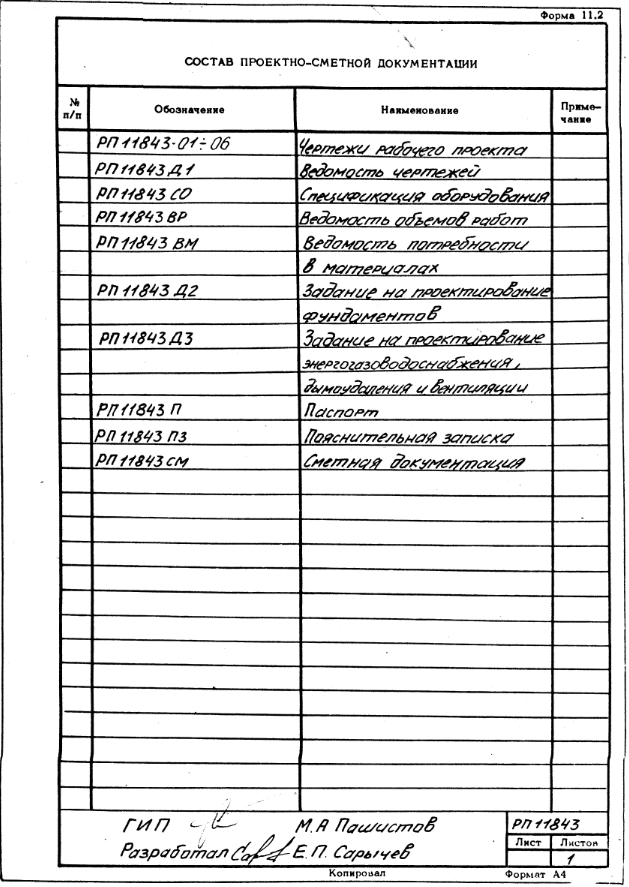 Форма 11.2
СОСТАВ ПРОЕКТНО-СМЕТНОЙ ДОКУМЕНТАЦИИ
№ п/п Обозначение Наименование Приме-
чание
РП 11843-01÷06 Чертежи рабочего проекта
РП 11843 Д1 Ведомость чертежей
РП 11843 СО Спецификация оборудования
РП 11843 ВР Ведомость объемов работ
РП 11843 ВМ Ведомость потребности
в материалах
РП 11843 Д2 Задание на проектирование
фундаментов
РП 11843 Д3 Задание на проектирование
энергогазоводоснабжения,
дымоудаления и вентиляции
РП 11843 П Паспорт
РП 11843 ПЗ Пояснительная записка
РП 11843 СМ Сметная документация
ГИП М.А Пашистов РП 11843
Разработал Е.П. Сарычев Лист Листов
1
Копировал Формат А4